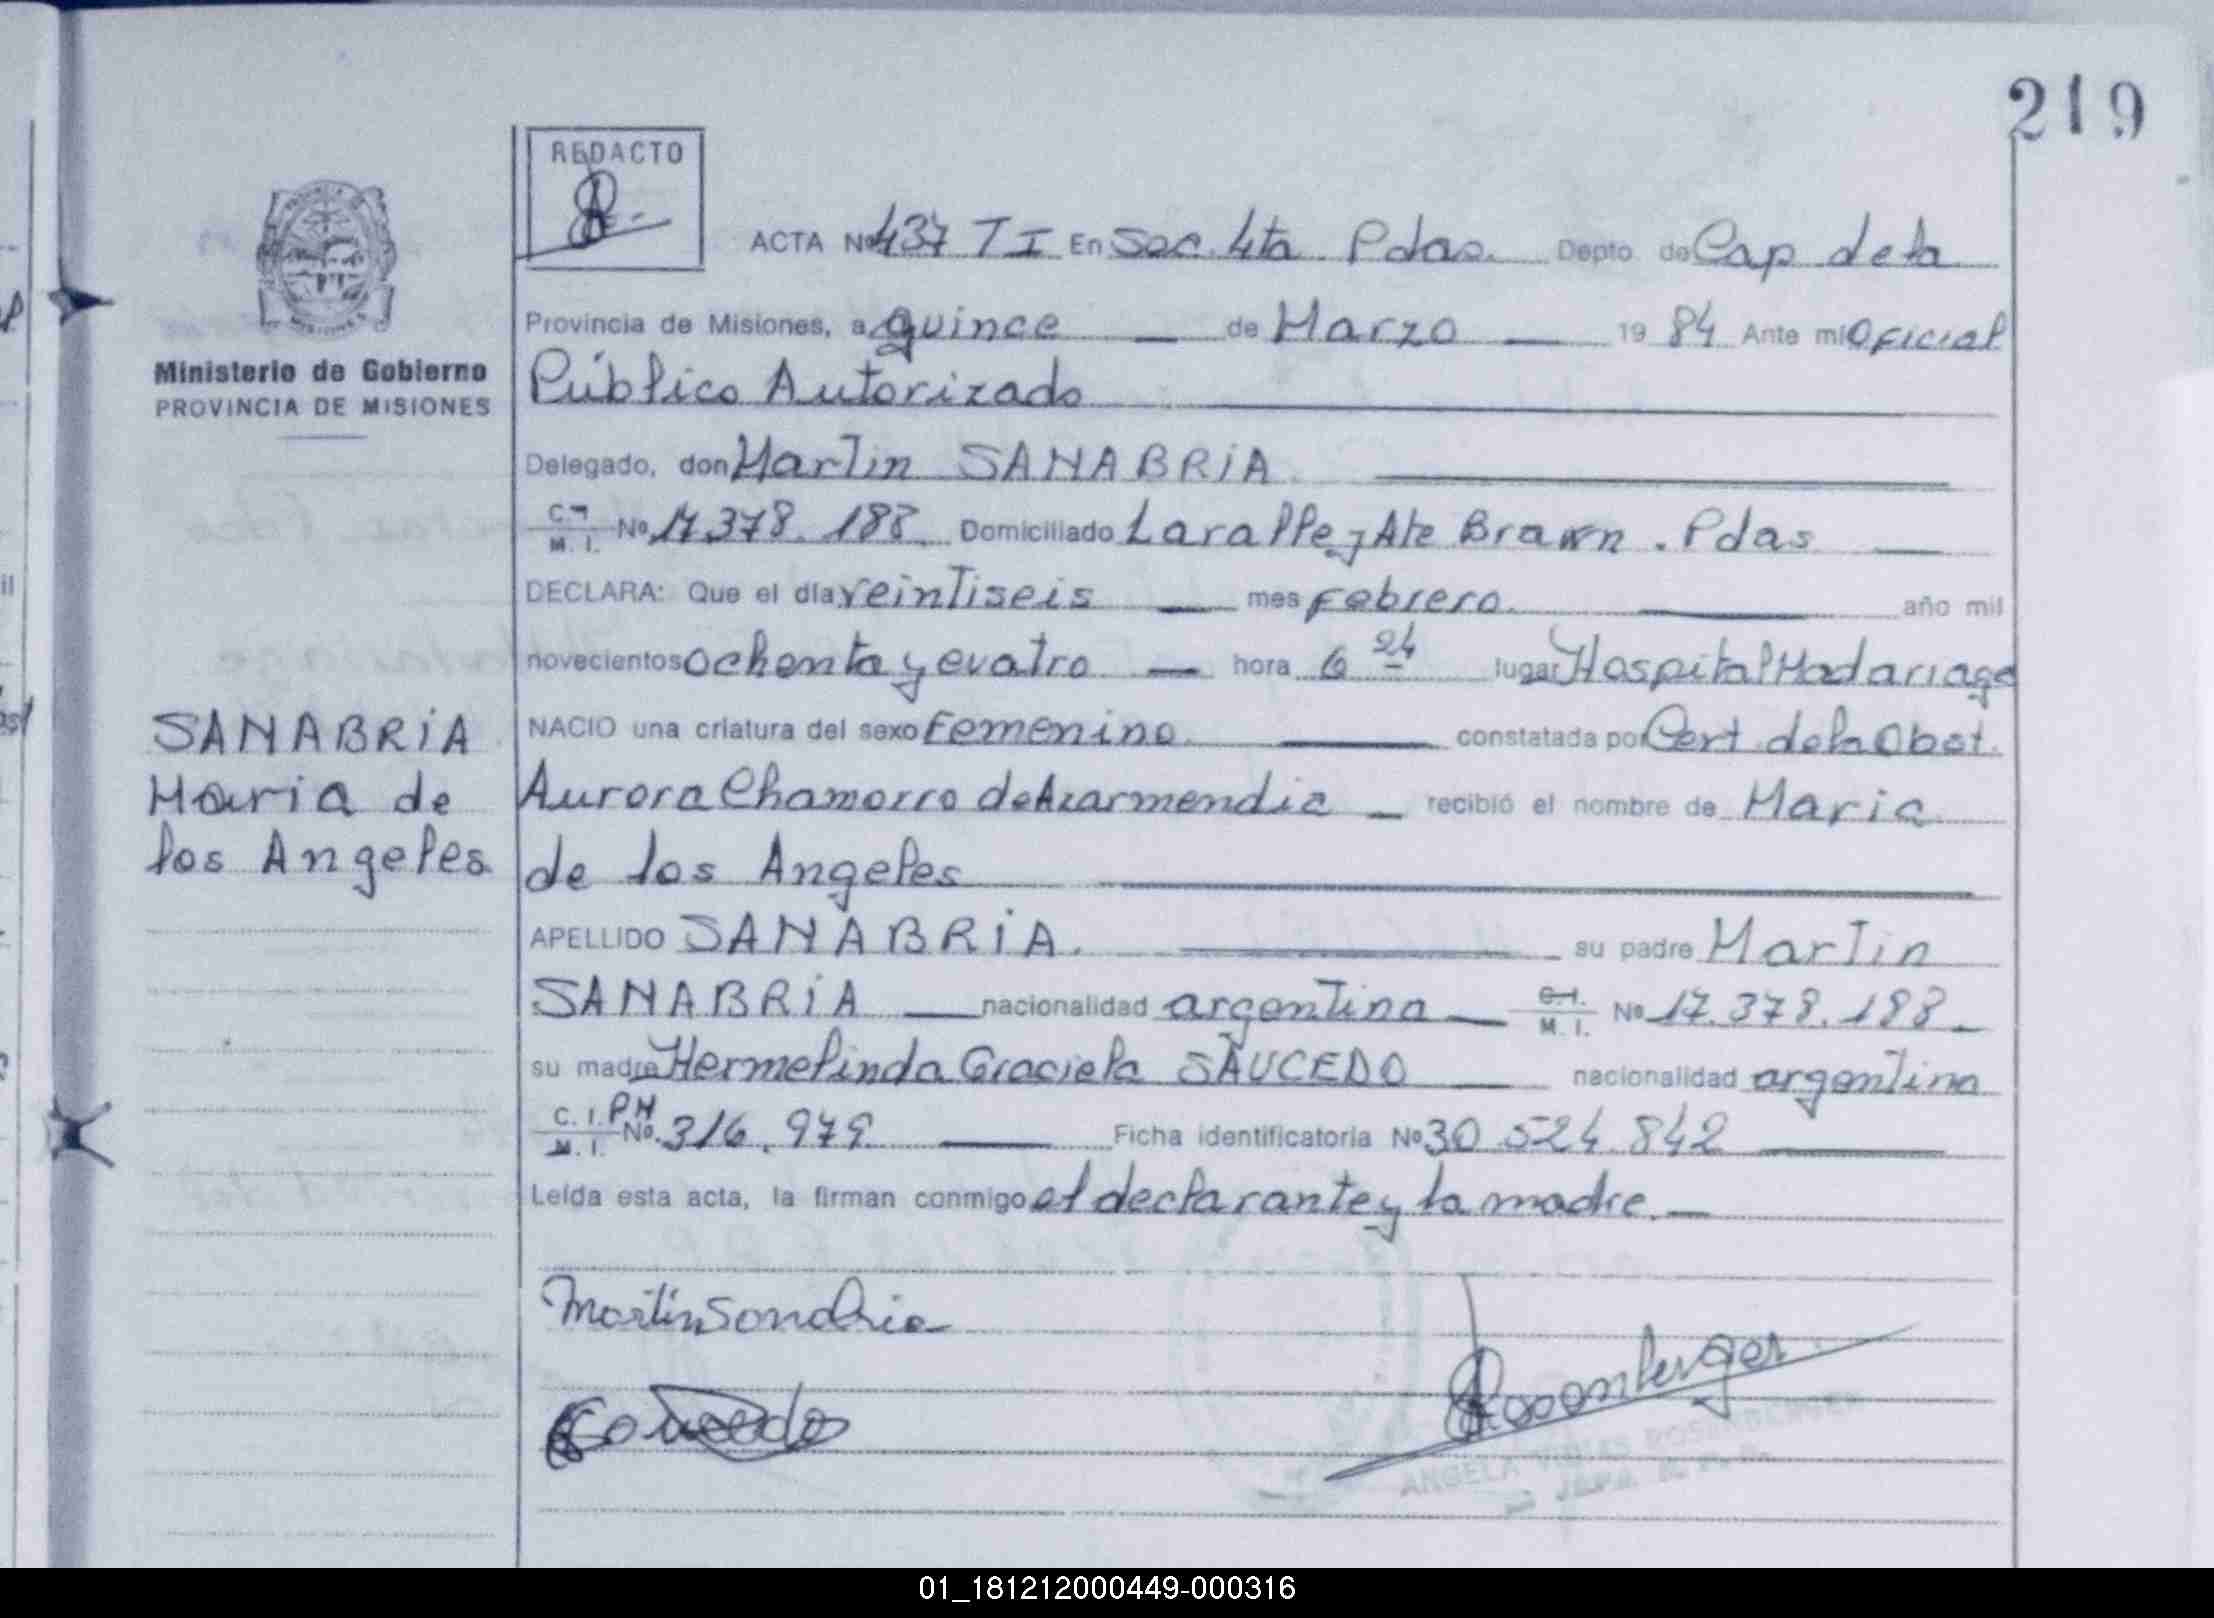 219
REDACTO
ACTA Nº 437 T I En Sec. 4ta Pdas. Depto. de Cap de la
Provincia de Misiones, a quince de Marzo 19 84 Ante mi Oficial
Público Autorizado
Ministerio de Gobierno
PROVINCIA DE MISIONES
Delegado, don Martin SANABRIA
C. I.
M. I. Nº 17.378.188 Domiciliado Laralle y Ate Brawn. Pdas
DECLARA: Que el día veintiseis mes Febrero año mil
novecientos ochenta y cuatro hora 6 24 lugar Hospital Madariaga
NACIO una criatura del sexo Femenino constatada por Cert de la Obst.
Aurora Chamorro de Azarmendia recibió el nombre de Maria
de los Angeles
SANABRIA
Maria de
los Angeles
APELLIDO SANABRIA. su padre Martin
SANABRIA nacionalidad argentina C. I.
M. I. Nº 17.378.188
su madre Hermelinda Graciela SAUCEDO nacionalidad argentina
C. I. P.M
M. I. Nº 316.979 Ficha identificatoria Nº 30 524 842
Leída esta acta, la firman conmigo el declarante y la madre.
Martin Sanabria
Rosenberger
ANGELA ROSENBERGER
01_181212000449-000316